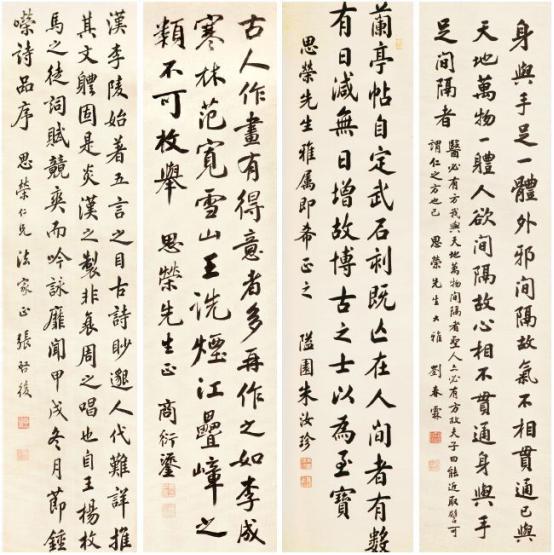 身與手足一體外邪間隔故氣不相貫通已與
天地萬物一體人欲間隔故心相不貫通身與手
足間隔者
醫必有方我與天地萬物間隔者聖人亦必有方故夫子曰能近取譬可
謂仁之方也已 思榮先生大雅 劉春霖
蘭亭帖自定武石刻既亡在人間者有數
有日減無日增故博古之士以為至寶
思榮先生雅屬即希正之 隘園朱汝珍
古人作畫有得意者多再作之如李成
寒林范寬雪山王詵煙江疊嶂之
類不可枚舉 思榮先生正 商衍鎏
漢李陵始著五言之目古詩眇邈人代難詳推
其文體固是炎漢之製非衰周之唱也自王楊枚
馬之徒詞賦競爽而吟詠靡聞甲戌冬月節鍾
嶸詩品序 思榮仁兄法家正 張啓後